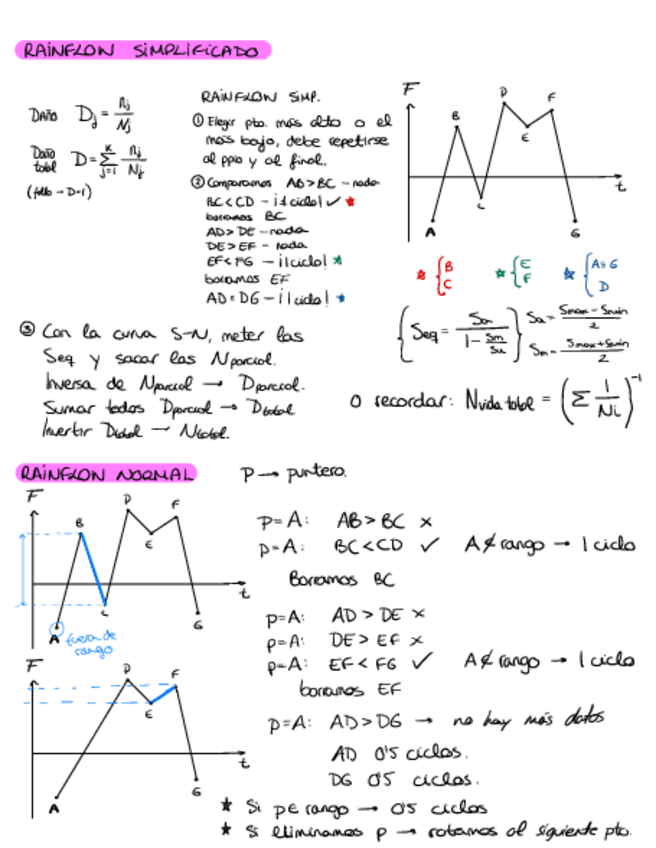 RAINFLOW SIMPLIFICADO
DAÑO Dj = nj/Nj
DAÑO total D = Σ k j=i nj/Nj
(fallo - D=1)
RAINFLOW SIMP.
① Elegir pto. más alto o el
más bajo, debe repetirse
al ppio y al final.
② Comparamos AB>BC - nada
BC<CD - ¡1 ciclo! ✓ ★
borramos BC
AD>DE - nada
DE>EF - nada
EF<FG - ¡1 ciclo! ★
borramos EF
AD=DG - ¡1 ciclo! ★
F
B
D
F
E
t
C
A
G
★ { B C
★ { E F
★ { A=G D
{ Seq = Sa / 1 - Sm/Su }
Sa = Smax - Smin / 2
Sm = Smax + Smin / 2
③ Con la curva S-N, meter las
Seq y sacar las Nparcial.
Inversa de Nparcial → Dparcial.
Sumar todos Dparcial → Dtotal
Invertir Dtotal → Ntotal.
O recordar: Nvida total = (Σ 1/Ni)⁻¹
RAINFLOW NORMAL
P → puntero.
F
B
D
F
E
t
C
A
G
fuera de
rango
p=A: AB>BC ×
p=A: BC<CD ✓ A∉rango → 1 ciclo
Borramos BC
p=A: AD>DE ×
p=A: DE>EF ×
p=A: EF<FG ✓ A∉rango → 1 ciclo
borramos EF
p=A: AD>DG → no hay más datos
AD 0'5 ciclos.
DG 0'5 ciclos.
F
D
F
E
t
A
G
★ Si p∈rango → 0'5 ciclos
★ Si eliminamos p → rotamos al siguiente pto.